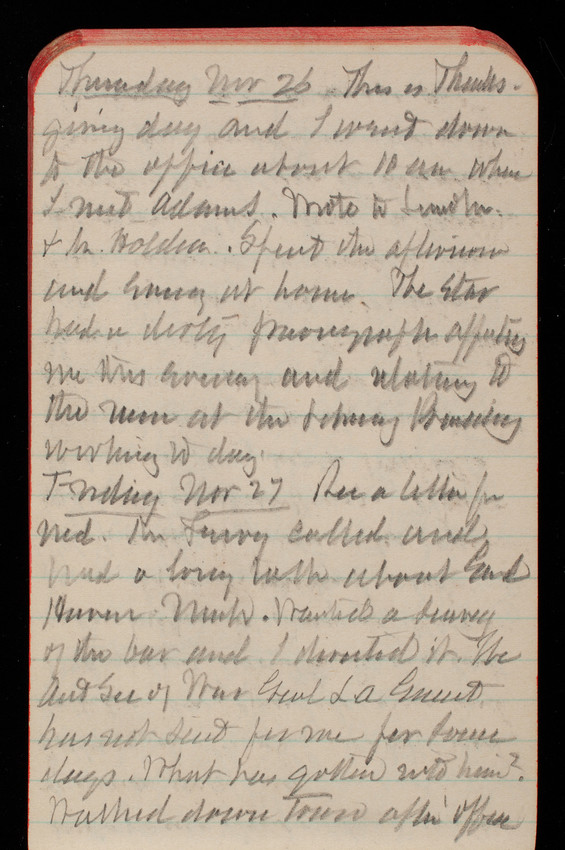 Thursday Nov 26 This is Thanks-
giving day and I went down
to the office about 10 am when
I met Adams. Wrote to
& Mr. Holden. Spent the afternoon
and evening at home. The Star
had a dirty paragraph affecting
me this evening and relating to
the men at the Library Building
working to day.
Friday Nov 27 Rec a letter fr
ned. Mr called and
had a long talk about Gand
Haven Mich. Wanted a survey
of the bar and I directed it. The
Act Sec of War Genl L A Grant
has not sent for me for some
days. What has gotten into him?
Walked down town after office